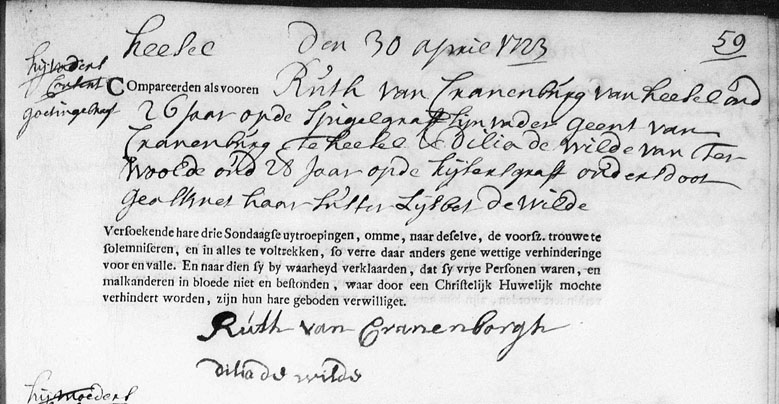 heesel Den 30 april 1723 59
hij vaders
Consent
goet ingebragt
COmpareerden als vooren Ruth van Cranenburg van heesel oud
26 Jaar op de Spigelgraft sijn vader Geent van
Cranenburg te heesel & Dilia de wilde van Ter-
woolde oud 28 Jaar op de Kysersgraft ouders doot
geass met haar suster Lijsbet de wilde
Versoekende hare drie Sondaagse uytroepingen, omme, naar deselve, de voorsz. trouwe te
solemniseren, en in alles te voltrekken, so verre daar anders gene wettige verhinderinge
voor en valle. En naar dien sy by waarheyd verklaarden, dat sy vrye Personen waren, en
malkanderen in bloede niet en bestonden, waar door een Christelijk Huwelijk mochte
verhindert worden, zijn hun hare geboden verwilliget.
Ruth van Cranenborgh
dilia de wilde
hij moeders